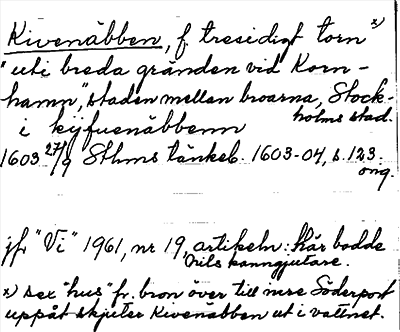 Kivenäbben, f. tresidigt torn x)
"uti breda gränden vid Korn-
hamn", staden mellan broarna, Stock-
holms stad.
i kijfuenäbbenn
1603 27/9 Sthms tänkeb. 1603-04, s. 123.
orig.
jfr "Vi" 1961, nr 19, artikeln: Här bodde
Nils kanngjutare.
x) sex "hus" fr. bron över till inre Söderport
uppåt skjuter Kivenabben ut i vattnet.